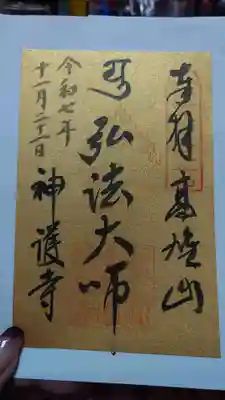 奉拝 高雄山
弘法大師
神護寺
令和七年
十一月二十二日